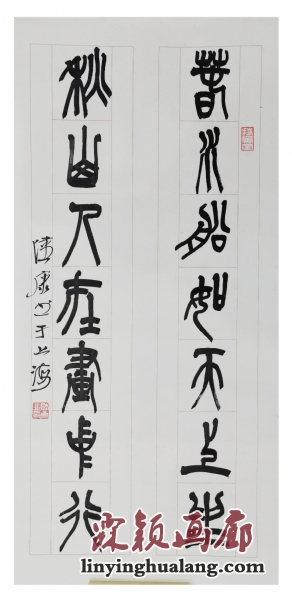 春水船如天上坐
秋山人在畫中行
陸康书于上海
霖颖画廊
linyinghualang.com